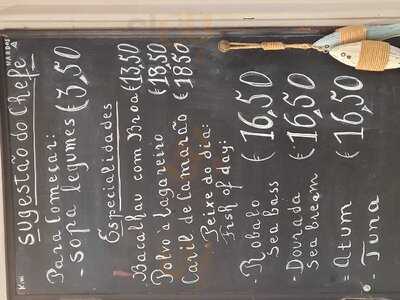 Sugestão do Chefe
Para Começar:
- sopa legumes €3,50
Especialidades
Bacalhau com Broa €13,50
Polvo à Lagareiro €18,50
Caril de Camarão €18,50
Peixe do dia:
Fish of day:
- Robalo
Sea bass € 16,50
- Dourada
Sea bream € 16,50
- Atum
- Tuna € 16,50